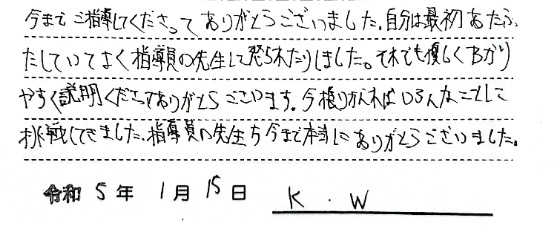 今までご指導してくださってありがとうございました。自分は最初あたふ
たしていてよく指導員の先生して怒られたりしました。それでも優しくわかり
やすく説明くださってありがとうございます。今振りかえればいろんなことして
挑戦してきました。指導員の先生方今まで本当にありがとうございました。
令和 5 年 1 月 15 日 K . W